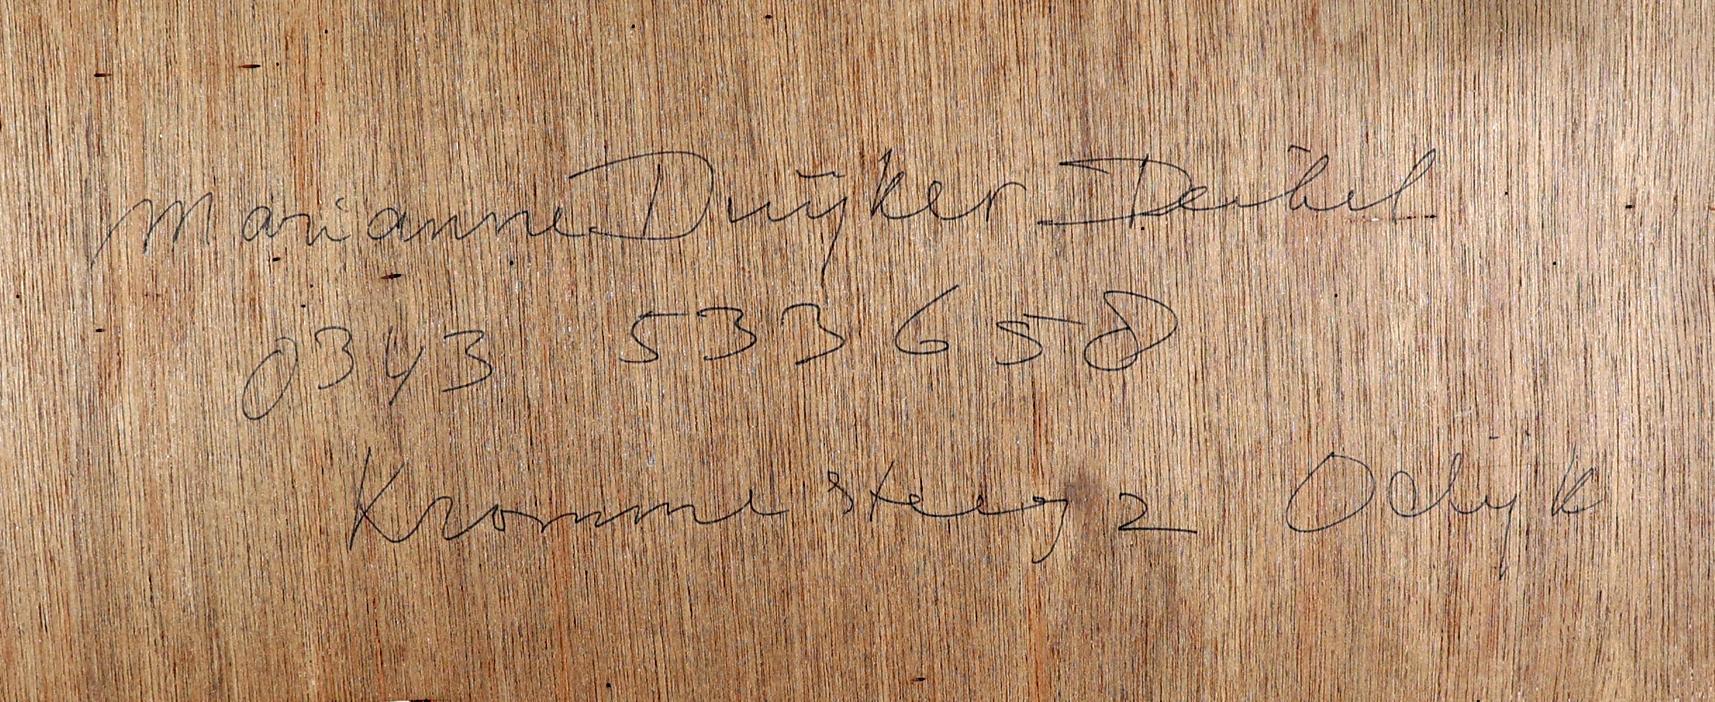 Marianne Duijker Deibel
0343 533658
Kromme steeg 2 Odijk